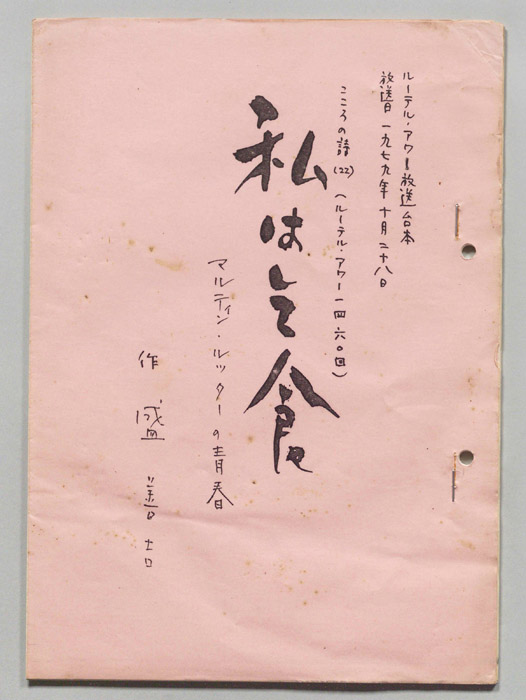 ルーテル・アワー放送台本
放送日 一九七九年十月二十八日
こころの詩(22)(ルーテル・アワー一四六〇回)
私は乞食
マルティン・ルッターの青春
作 盛善吉